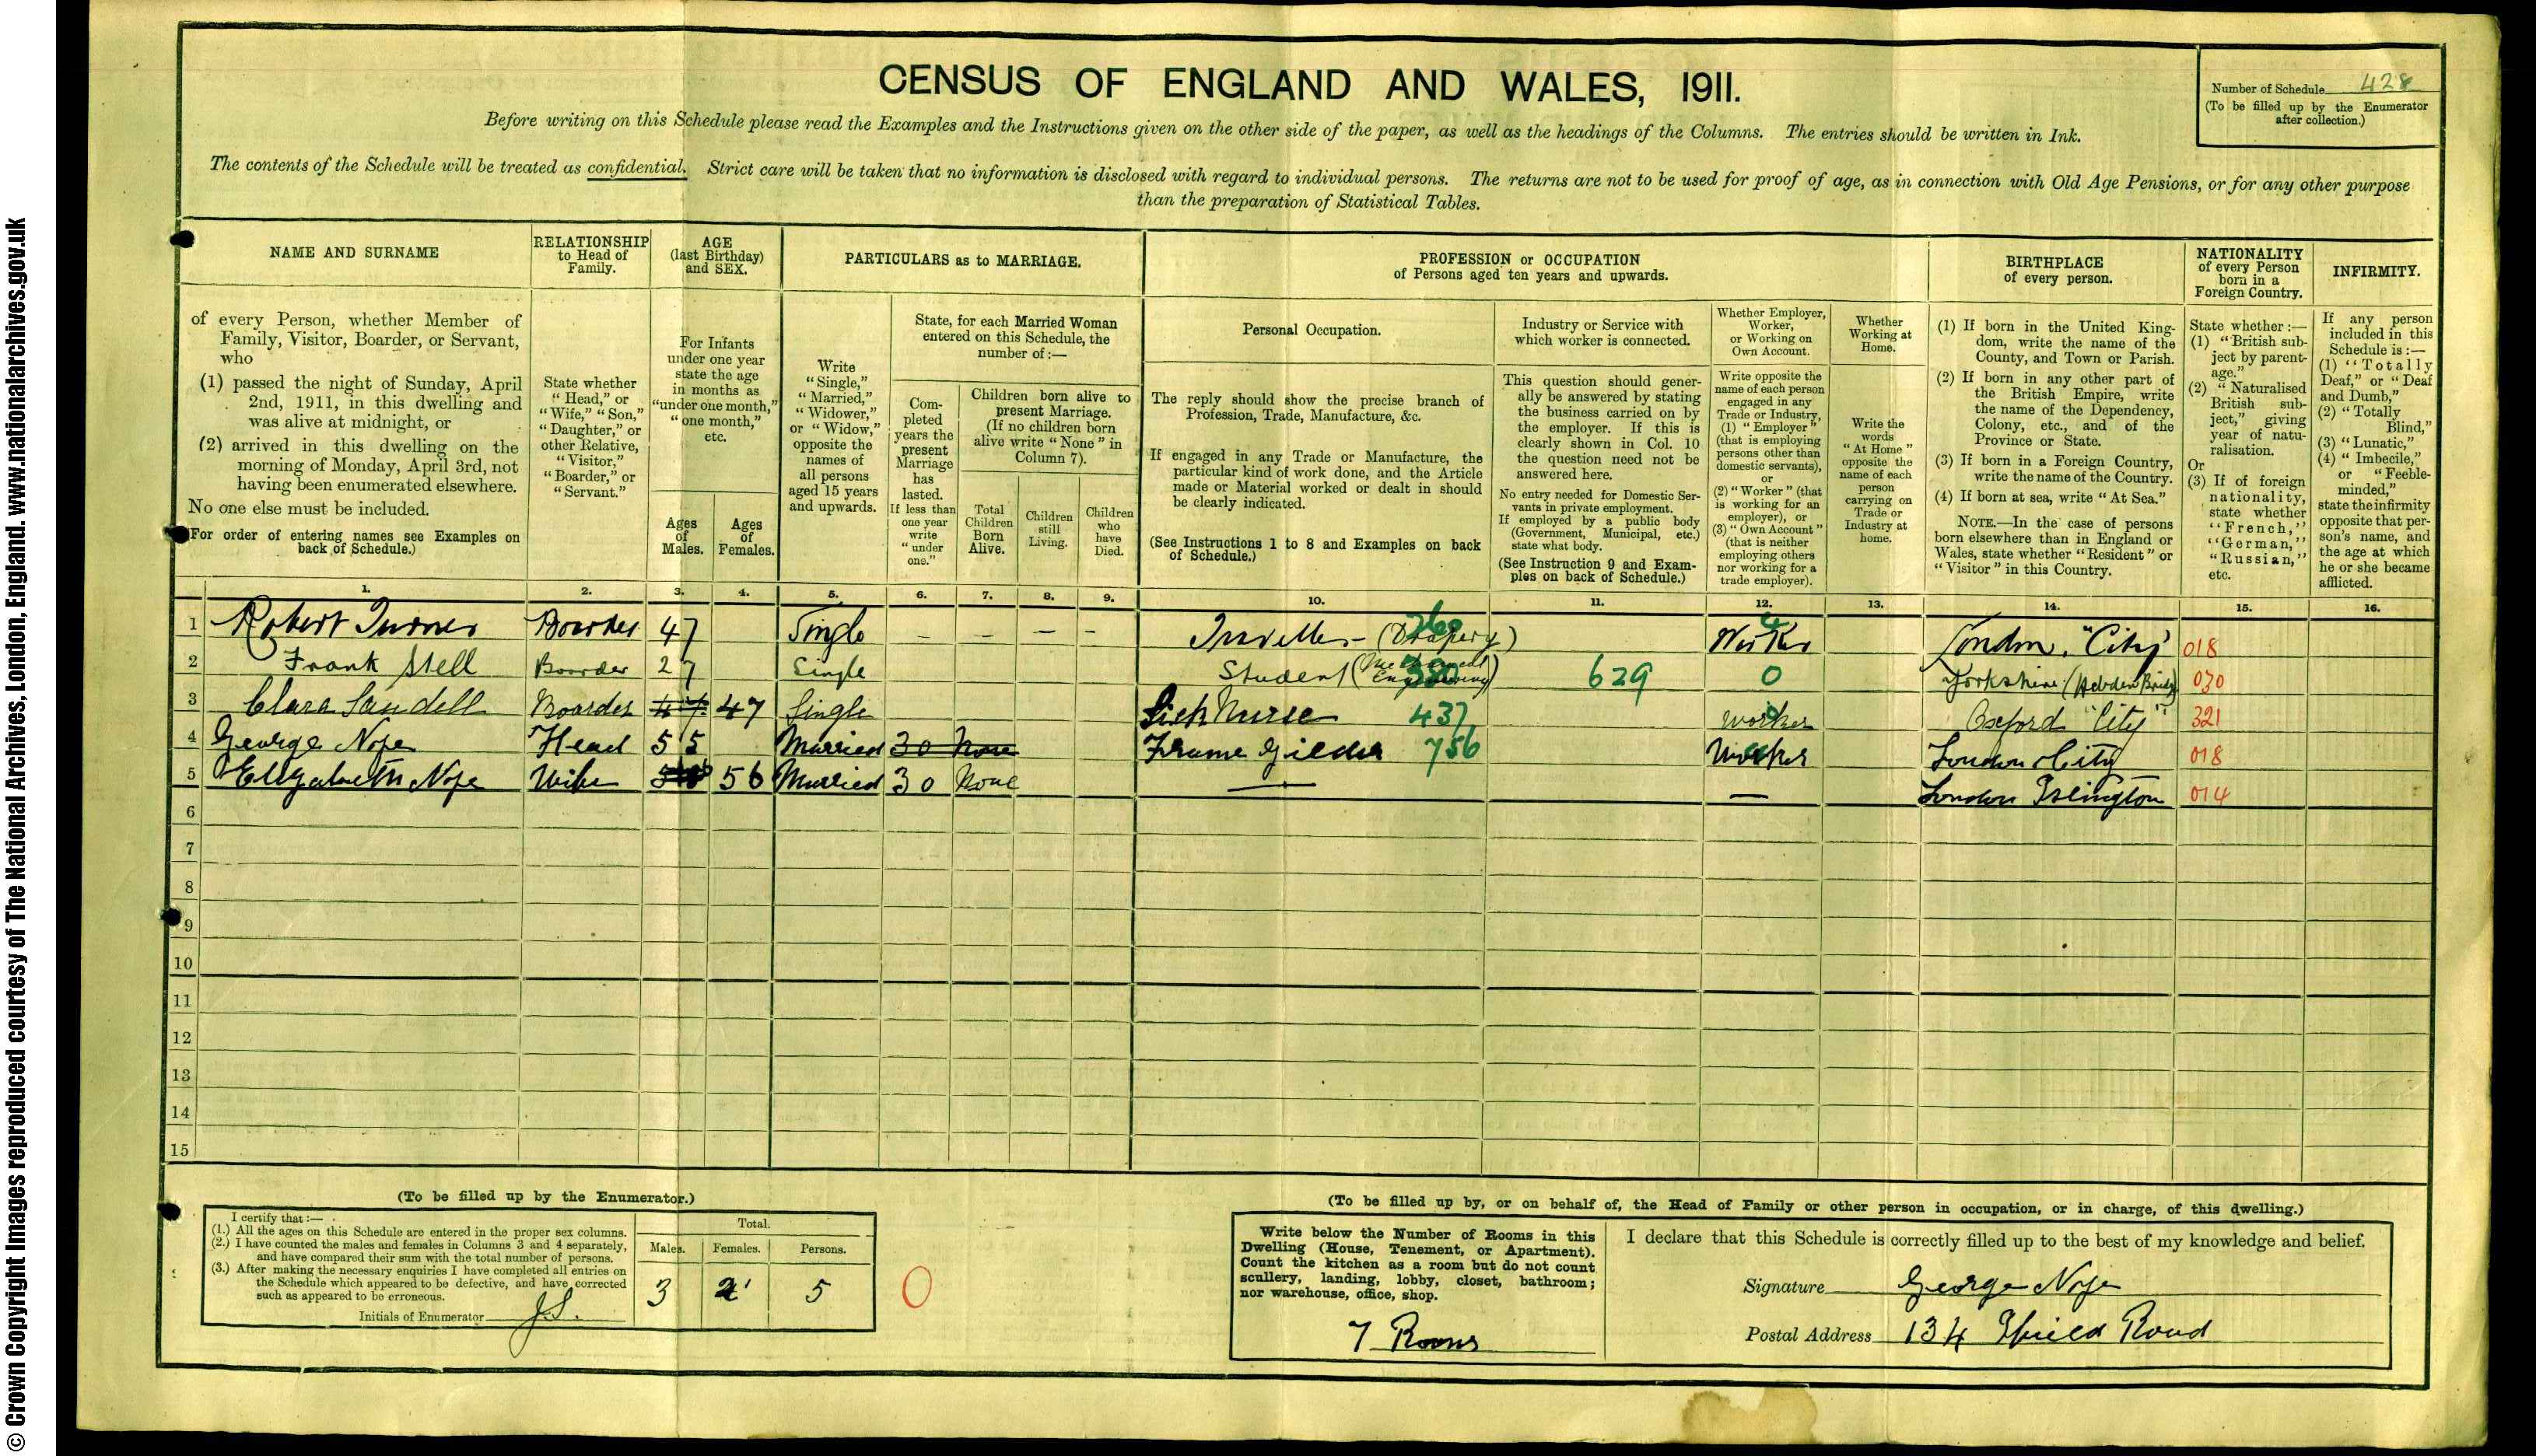 © Crown Copyright Images reproduced courtesy of The National Archives, London, England. www.nationalarchives.gov.uk
CENSUS OF ENGLAND AND WALES, 1911.
Number of Schedule 428
(To be filled up by the Enumerator
after collection.)
Before writing on this Schedule please read the Examples and the Instructions given on the other side of the paper, as well as the headings of the Columns. The entries should be written in Ink.
The contents of the Schedule will be treated as confidential. Strict care will be taken that no information is disclosed with regard to individual persons. The returns are not to be used for proof of age, as in connection with Old Age Pensions, or for any other purpose
than the preparation of Statistical Tables.
NAME AND SURNAME
of every Person, whether Member of
Family, Visitor, Boarder, or Servant,
who
(1) passed the night of Sunday, April
2nd, 1911, in this dwelling and
was alive at midnight, or
(2) arrived in this dwelling on the
morning of Monday, April 3rd, not
having been enumerated elsewhere.
No one else must be included.
(For order of entering names see Examples on
back of Schedule.)
RELATIONSHIP
to Head of
Family.
State whether
"Head," or
"Wife," "Son,"
"Daughter," or
other Relative,
"Visitor,"
"Boarder," or
"Servant."
AGE
(last Birthday)
and SEX.
For Infants
under one year
state the age
in months as
"under one month,"
"one month,"
etc.
Ages
of
Males.
Ages
of
Females.
PARTICULARS as to MARRIAGE.
Write
"Single,"
"Married,"
"Widower,"
or "Widow,"
opposite the
names of
all persons
aged 15 years
and upwards.
State, for each Married Woman
entered on this Schedule, the
number of:—
Com-
pleted
years the
present
Marriage
has
lasted.
If less than
one year
write
"under
one."
Children born alive to
present Marriage.
(If no children born
alive write "None" in
Column 7).
Total
Children
Born
Alive.
Children
still
Living.
Children
who
have
Died.
PROFESSION or OCCUPATION
of Persons aged ten years and upwards.
Personal Occupation.
The reply should show the precise branch of
Profession, Trade, Manufacture, &c.
If engaged in any Trade or Manufacture, the
particular kind of work done, and the Article
made or Material worked or dealt in should
be clearly indicated.
(See Instructions 1 to 8 and Examples on back
of Schedule.)
Industry or Service with
which worker is connected.
This question should gener-
ally be answered by stating
the business carried on by
the employer. If this is
clearly shown in Col. 10
the question need not be
answered here.
No entry needed for Domestic Ser-
vants in private employment.
If employed by a public body
(Government, Municipal, etc.)
state what body.
(See Instruction 9 and Exam-
ples on back of Schedule.)
Whether Employer,
Worker,
or Working on
Own Account.
Write opposite the
name of each person
engaged in any
Trade or Industry,
(1) "Employer"
(that is employing
persons other than
domestic servants),
or
(2) "Worker" (that
is working for an
employer), or
(3) "Own Account"
(that is neither
employing others
nor working for a
trade employer).
Whether
Working at
Home.
Write the
words
"At Home"
opposite the
name of each
person
carrying on
Trade or
Industry at
home.
BIRTHPLACE
of every person.
(1) If born in the United King-
dom, write the name of the
County, and Town or Parish.
(2) If born in any other part of
the British Empire, write
the name of the Dependency,
Colony, etc., and of the
Province or State.
(3) If born in a Foreign Country,
write the name of the Country.
(4) If born at sea, write "At Sea."
NOTE.—In the case of persons
born elsewhere than in England or
Wales, state whether "Resident" or
"Visitor" in this Country.
NATIONALITY
of every Person
born in a
Foreign Country.
State whether:—
(1) "British sub-
ject by parent-
age."
(2) "Naturalised
British sub-
ject," giving
year of natu-
ralisation.
Or
(3) If of foreign
nationality,
state whether
"French,"
"German,"
"Russian,"
etc.
INFIRMITY.
If any person
included in this
Schedule is:—
(1) "Totally
Deaf," or "Deaf
and Dumb,"
(2) "Totally
Blind,"
(3) "Lunatic,"
(4) "Imbecile,"
or "Feeble-
minded,"
state the infirmity
opposite that per-
son's name, and
the age at which
he or she became
afflicted.
1. 2. 3. 4. 5. 6. 7. 8. 9. 10. 11. 12. 13. 14. 15. 16.
1 Robert Turner Boarder 47 Single — — — — Traveller - (Drapery) Worker London. "City" 018
2 Frank Stell Boarder 27 Single Student (Mechanical Engineering) 629 0 Yorkshire (Hebden Bridge) 030
3 Clara Sandell Boarder 47 Single Sick Nurse 437 worker Oxford "City" 321
4 George Nope Head 55 Married 30 None Frame Gilder 756 Worker London City 018
5 Elizabeth Nope Wife 56 Married 30 None — — London Islington 014
6
7
8
9
10
11
12
13
14
15
(To be filled up by the Enumerator.)
I certify that:—
(1.) All the ages on this Schedule are entered in the proper sex columns.
(2.) I have counted the males and females in Columns 3 and 4 separately,
and have compared their sum with the total number of persons.
(3.) After making the necessary enquiries I have completed all entries on
the Schedule which appeared to be defective, and have corrected
such as appeared to be erroneous.
Initials of Enumerator J.S.
Total.
Males. Females. Persons.
3 2 5
0
(To be filled up by, or on behalf of, the Head of Family or other person in occupation, or in charge, of this dwelling.)
Write below the Number of Rooms in this
Dwelling (House, Tenement, or Apartment).
Count the kitchen as a room but do not count
scullery, landing, lobby, closet, bathroom;
nor warehouse, office, shop.
7 Rooms
I declare that this Schedule is correctly filled up to the best of my knowledge and belief.
Signature George Nope
Postal Address 134 Road